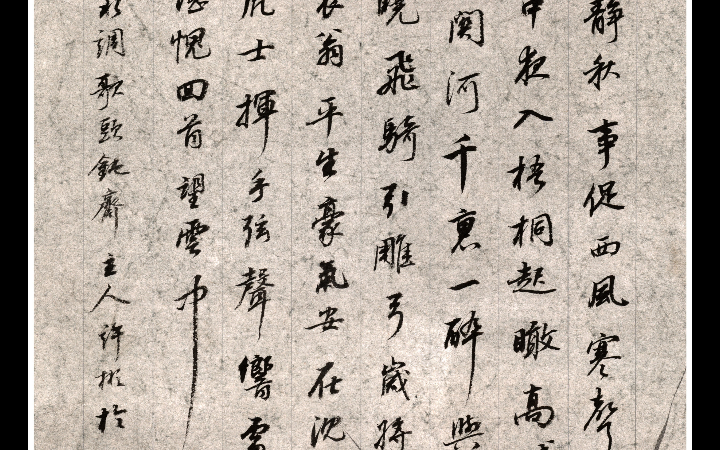 靜秋事促西風寒聲
中夜入梧桐起瞰高
關河千裏一醉與
曉飛騎引雕弓歲將
衰翁平生豪氣安在沈
虎士揮手弦聲響
堪愧回首望雲中
水調歌頭鈍齋主人許彬於